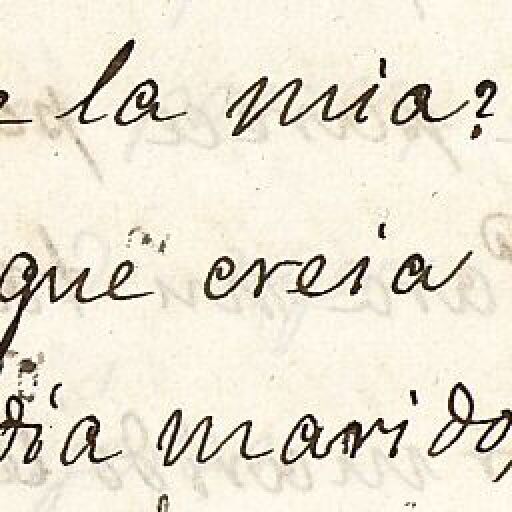 la mia?
que creia
dia marido,